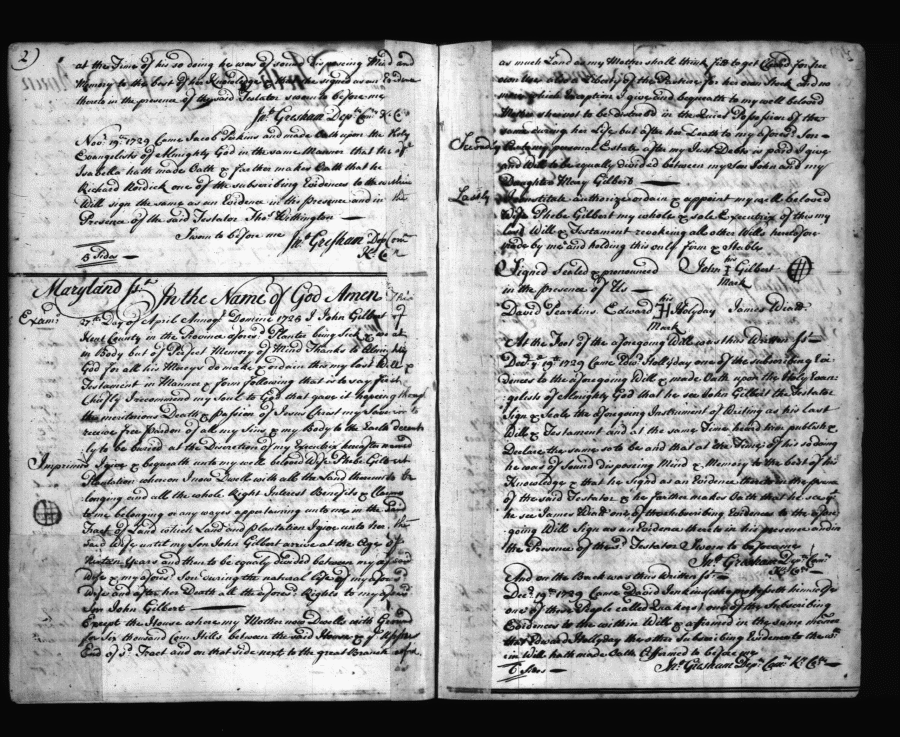 2
at the Time of his so doing he was of sound Disposing Mind and
Memory to the best of his Knowledge & that he signed as an Evidence
thereto in the presence of the said Testator sworn to before me
Ja.s Gresham Dep.y Com.y K: C.o
Nov.r 19.th 1729 Came Jacob Perkins and made Oath upon the Holy
Evangelists of Almighty God in the same Manner that the af.d
Isabella hath made Oath & farther makes Oath that he
Richard Kordick one of the subscribing Evidences to the within
Will sign the same as an Evidence in the presence and in the
Presence of the said Testator Tho.s Hillington
Sworn to before me Ja.s Gresham Dep Com.y
K: C.o
3 Sides
Maryland ss.t In the Name of God Amen This
Exam.d
27.th Day of April Annoq Domine 1728 I John Gilbert of
Kent County in the Province afores.d Planter being Sick & weak
in Body but of Perfect Memory of Mind Thanks to Almighty
God for all his Mercys do make & ordain this my last Will &
Testament in Manner & form following that is to say first
Chiefly I recommend my Soul to God that gave it hopeing through
the meritorious Death & Passion of Jesus Christ my Saviour to
receive free Pardon of all my Sins & my Body to the Earth decent
ly to be buried at the Discretion of my Executrix hereafter named
Imprimis I give & bequeath unto my well beloved Wife Phebe Gilbert
Plantation whereon I now Dwell with all the Land thereunto be
longing and all the whole Right Interest Benefits & Claims
to me belonging or any ways appertaining unto me in the said
Tract of Land which Land and Plantation I give unto her the
said Wife until my Son John Gilbert arrive at the Age of
Years and then to be equaly divided between my afores.d
Wife & my afores.d Son during the natural life of my afores.d
Wife and after her Death all the afores.d Rights to my afores.d
Son John Gilbert
Except the House where my Mother now Dwells with Ground
for Six thousand Corn Hills between the said House & y.e
End of s.d Tract and on that side next to the great Branch
as
as much Land as my Mother shall think fit to get Clear'd for her
own Use also Liberty of the Pasture for her own Stock and no
more which Exception I give and bequeath to my well beloved
Mother she is not to be disturbed in the Quiet Possession of the
same during her Life but after her Death to my afores.d Son
Secondly my personal Estate after my Just Debts is paid I give
and Will to be equally divided between my Son John and my
Daughter Mary Gilbert
Lastly I Constitute authorize ordain & appoint my well beloved
Wife Phebe Gilbert my whole & sole Executrix of this my
last Will & Testament revoking all other Wills heretofore
made by me and holding this only firm & Stable
Signed Sealed & pronounced John his Gilbert
in the presence of Us Mark
David Jearkins. Edward his H Holyday James Wiatt.
Mark
At the Foot of the aforegoing Will was thus Written ss.t
Dec.r y.e 19.th 1729 Came Edw.d Hollyday one of the subscribing Evi
dences to the aforegoing Will & made Oath upon the Holy Evan
gelists of Almighty God that he see John Gilbert the Testator
Sign & Seale the aforegoing Instrument of Writing as his last
Will & Testament and at the same Time heard him publish &
Declare the same so to be and that at the Time of his so doing
he was of Sound Disposing Mind & Memory to the best of his
Knowledge & that he Signed as an Evidence thereto in the presence
of the said Testator & he farther makes Oath that he
he see James Wiatt one of the subscribing Evidences to the afore
going Will Sign as an Evidence thereto in his presence and in
the Presence of the s.d Testator Sworn to before me
Ja.s Gresham Dep.y Com.y
K: C.o
And on the Back was thus Written ss.t
Dec.r 19.th 1729 Came David Jenkins (who professeth himself
one of those People called Quakers) one of the Subscribing
Evidences to the within Will & affirmed in the same Manner
that Edward Hollyday the other Subscribing Evidence to the w.th
in Will hath made Oath Affirmed to before me
Ja.s Gresham Dep.y Com.y K: C.o
6 Sides